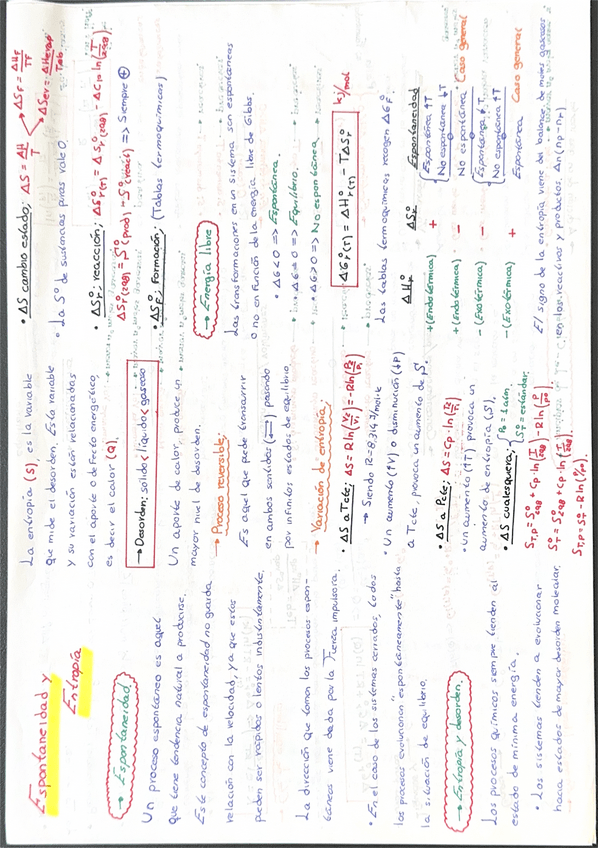 Espontaneidad y
Entropía
→ Espontaneidad
Un proceso espontáneo es aquel
que tiene tendencia natural a producirse.
Este concepto de espontaneidad no guarda
relación con la velocidad, ya que estos
pueden ser rápidos o lentos indistintamente.
La dirección que toman los procesos espon-
táneos viene dada por la Fuerza impulsora.
• En el caso de los sistemas cerrados, todos
los procesos evolucionan espontáneamente hasta
la situación de equilibrio.
→ Entropía y desorden.
Los procesos químicos siempre tienden al
estado de mínima energía.
• Los sistemas tienden a evolucionar
hacia estados de mayor desorden molecular.
La entropía (S), es la variable
que mide el desorden. Esta variable
y su variación están relacionadas
con el aporte o defecto energético,
es decir el calor (Q).
→ Desorden; sólido < líquido < gaseoso
Un aporte de calor, produce un
mayor nivel de desorden.
→ Proceso reversible;
Es aquel que puede transcurrir
en ambos sentidos (⇌) pasando
por infinitos estados de equilibrio.
→ Variación de entropía;
• ΔS a Tcte; ΔS = R ln(V₂/V₁) = -R ln(P₂/P₁)
→ Siendo R = 8,314 J/mol·k
• Un aumento (↑V) o disminución (↓P)
a Tcte, provoca un aumento de S.
• ΔS a Pcte; ΔS = Cp · ln(T₂/T₁)
• Un aumento (↑T) provoca un
aumento de entropía (S).
• ΔS cualesquiera; { P₀ = 1 atm
S°T = estándar.
S T,P = S°298 + Cp · ln(T/298) - R ln(P/P₀)
S°T = S°298 + Cp · ln(T/298)
S T,P = S°T - R ln(P/P₀)
• ΔS cambio estado; ΔS = ΔH/T → ΔS F = ΔH F/T F
→ ΔS ev = ΔH evap/T eb
• La S° de sustancias puras vale 0.
• ΔS°r; reacción; ΔS°r(T) = ΔS°r(298) - ΔCp ln(T/298)
ΔS°r(298) = S°(prod) - S°(react) => Siempre ⊕
• ΔS°F; Formación; (Tablas termoquímicas)
→ Energía libre
Las transformaciones en un sistema son espontáneas
o no en función de la energía libre de Gibbs.
• ΔG < 0 => Espontánea.
• ΔG = 0 => Equilibrio.
• ΔG > 0 => No espontánea.
ΔG°r(T) = ΔH°r(T) - TΔS°r kJ/mol
Las tablas termoquímicas recogen ΔG°F.
ΔH°r ΔS°r Espontaneidad
+ (Endotérmica) + { Espontánea ↑T
No espontánea ↓T
+ (Endotérmica) - No espontánea • Caso general
- (Exotérmica) - { Espontánea ↓T
No espontánea ↑T
- (Exotérmica) + Espontánea Caso general
El signo de la entropía viene del balance de moles gaseosos
en los reactivos y productos. Δn(np - nr)